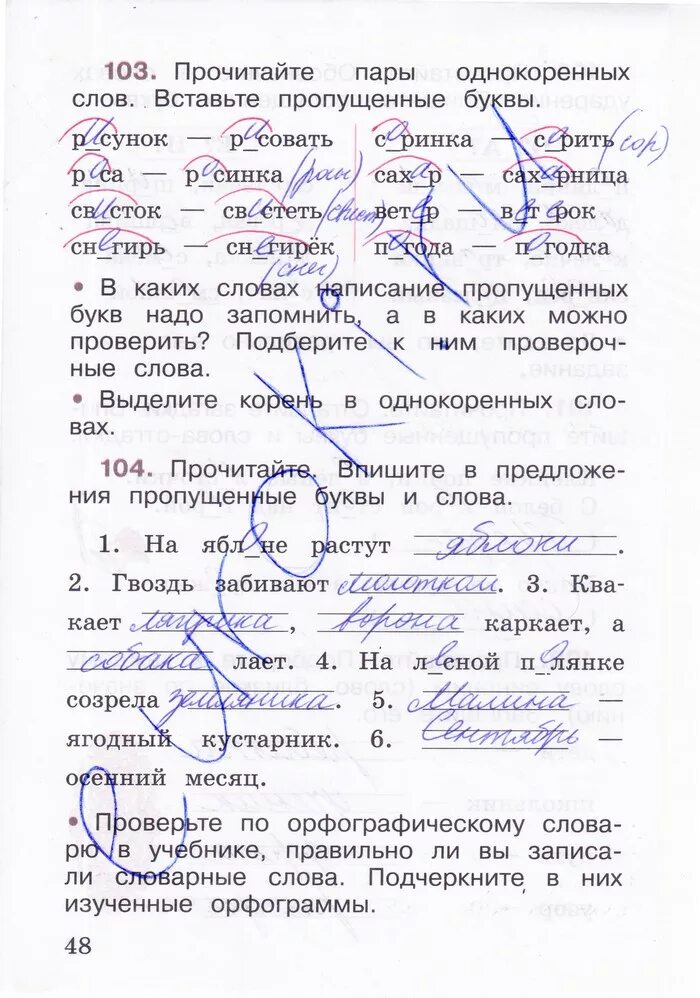 103. Прочитайте пары однокоренных
слов. Вставьте пропущенные буквы.
рисунок — рисовать соринка — сорить (сор)
роса — росинка (росы) сахар — сахарница
свисток — свистеть (свист) ветер — ветерок
снегирь — снегирёк погода — погодка
(снег)
• В каких словах написание пропущенных
букв надо запомнить, а в каких можно
проверить? Подберите к ним провероч-
ные слова.
• Выделите корень в однокоренных сло-
вах.
104. Прочитайте. Впишите в предложе-
ния пропущенные буквы и слова.
1. На яблоне растут яблоки.
2. Гвоздь забивают молотком. 3. Ква-
кает лягушка, ворона каркает, а
собака лает. 4. На лесной полянке
созрела земляника. 5. Малина —
ягодный кустарник. 6. Сентябрь —
осенний месяц.
• Проверьте по орфографическому слова-
рю в учебнике, правильно ли вы записа-
ли словарные слова. Подчеркните в них
изученные орфограммы.
48